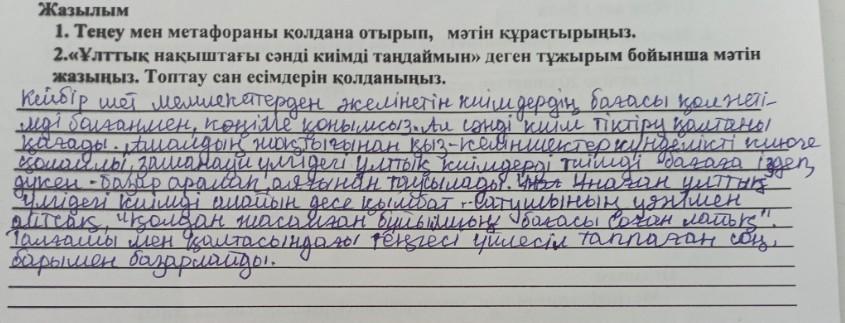 Жазылым
1. Теңеу мен метафораны қолдана отырып, мәтін құрастырыңыз.
2.«Ұлттық нақыштағы сәнді киімді таңдаймын» деген тұжырым бойынша мәтін
жазыңыз. Топтау сан есімдерін қолданыңыз.
Кейбір шет мемлекеттерден әкелінетін киімдердің бағасы қолжеті-
мді болғанмен, көңілге қонымсыз. Ал сәнді киім тіктіру қалтаны
қағады. Амалдың жоқтығынан қыз-келіншектер күнделікті киюге
қолайлы, заманауи үлгідегі ұлттық киімдерді тиімді бағаға іздеп,
дүкен-базар аралап, аяғынан таусылады. Ұнаған ұлттық
үлгідегі киімді алайын десе қымбат. Сатушының
айтсақ, "қолдан жасалған бұйымның бағасы соған лайық".
Талғамы мен қалтасындағы теңгесі үйлесім таппаған соң,
барымен базарлайды.